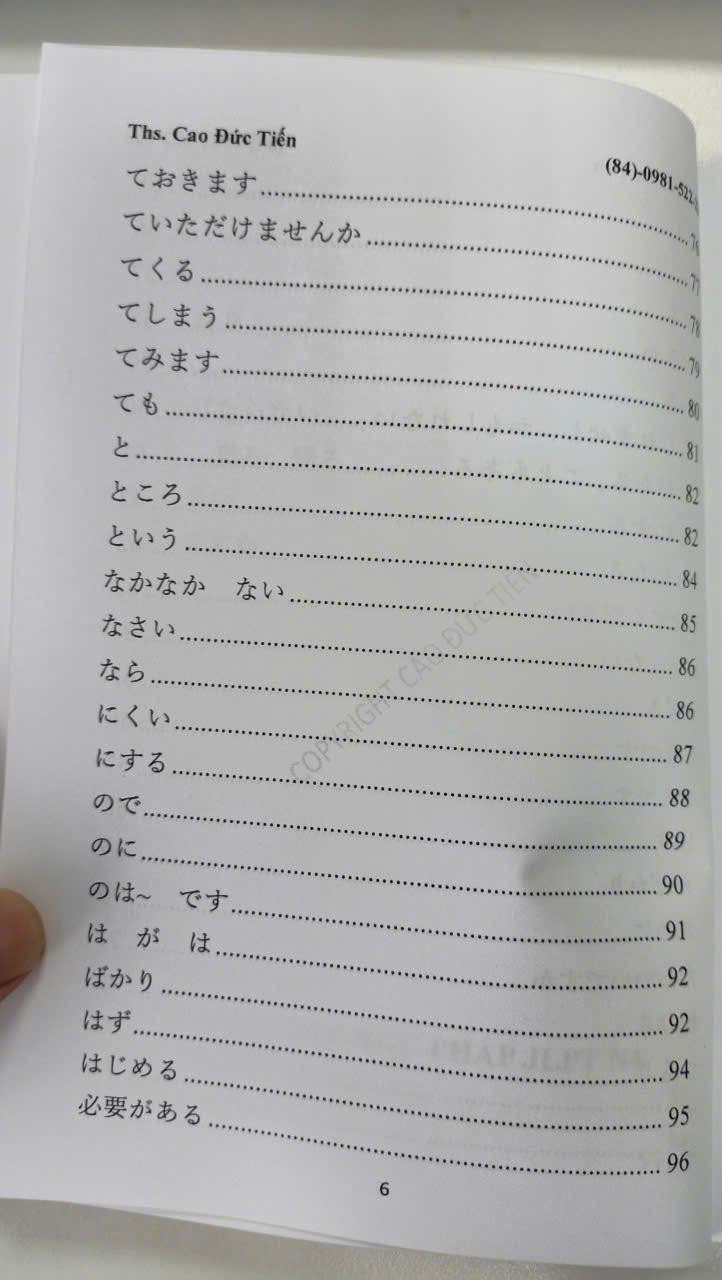 Ths. Cao Đức Tiến
(84)-0981-522-
ておきます 76
ていただけませんか 77
てくる 78
てしまう 79
てみます 80
ても 81
と 82
ところ 82
という 84
なかなか ない 85
なさい 86
なら 86
にくい 87
にする 88
ので 89
のに 90
のは~ です 91
は が は 92
ばかり 92
はず 94
はじめる 95
必要がある 96
COPYRIGHT CAO ĐỨC TIẾN
6